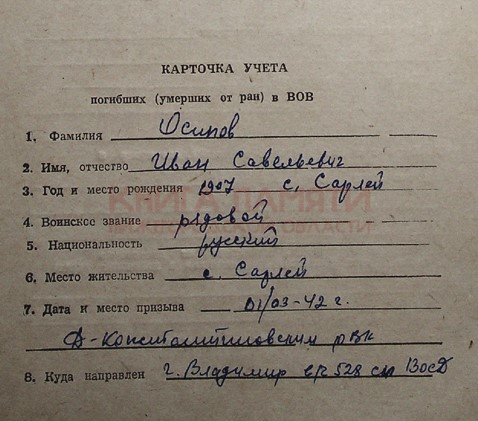 КАРТОЧКА УЧЕТА
погибших (умерших от ран) в ВОВ
1. Фамилия Осипов
2. Имя, отчество Иван Савельевич
3. Год и место рождения 1907 с. Сарлей
КНИГА ПАМЯТИ
4. Воинское звание рядовой
ОБЛАСТИ
5. Национальность русский
6. Место жительства с. Сарлей
7. Дата и место призыва 01/03-42 г.
Д-Константиновским РВК
8. Куда направлен г. Владимир 528